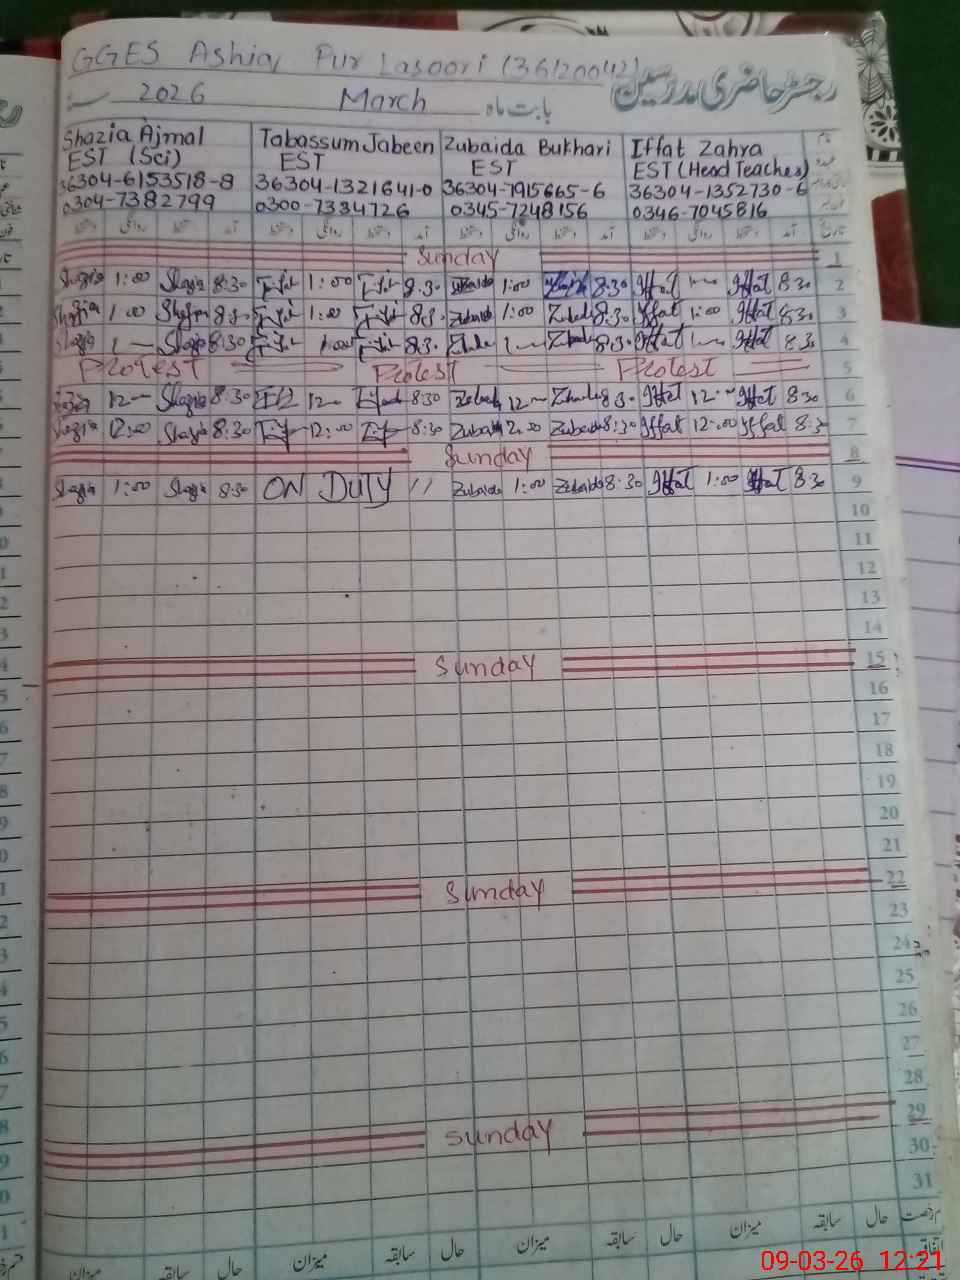 GGES Ashiq Pur Lasoori (36120042)
رجسٹر حاضری مدرسین
بابت ماہ March 2026 سنہ
Iffat Zahra Zubaida Bukhari Tabassum Jabeen Shazia Ajmal
EST (Head Teacher) EST EST EST (Sci)
36304-1352730-6 36304-7915665-6 36304-1321641-0 36304-6153518-8
0346-7045816 0345-7248156 0300-7334726 0304-7382799
تاریخ آمد دستخط روانگی دستخط آمد دستخط روانگی دستخط آمد دستخط روانگی دستخط آمد دستخط روانگی دستخط
Sunday 1
Shazia 1:00 Shazia 8:30 1:00 8:30 Zubaida 1:00 8:30 Iffat Iffat 8:30 2
Shazia 1:00 Shazia 8:30 1:00 8:30 Zubaida 1:00 Zubaida 8:30 Iffat 1:00 Iffat 8:30 3
Shazia 1 Shazia 8:30 1:00 8:30 1 8:30 Iffat 1 Iffat 8:30 4
Protest Protest Protest 5
Shazia 12 Shazia 8:30 12 8:30 Zubaida 12 8:30 Iffat 12 Iffat 8:30 6
Shazia 12:00 Shazia 8:30 12:00 8:30 Zubaida Zubaida 8:30 Iffat 12:00 Iffat 8:30 7
Sunday 8
Shazia 1:00 Shazia 8:30 ON DUTY // Zubaida 1:00 Zubaida 8:30 Iffat 1:00 Iffat 8:30 9
10
11
12
13
14
Sunday 15
16
17
18
19
20
21
Sunday 22
23
24
25
26
27
28
Sunday 29
30
31
حال سابقہ میزان حال سابقہ میزان حال سابقہ میزان حال سابقہ میزان
اتفاقیہ
09-03-26 12:21